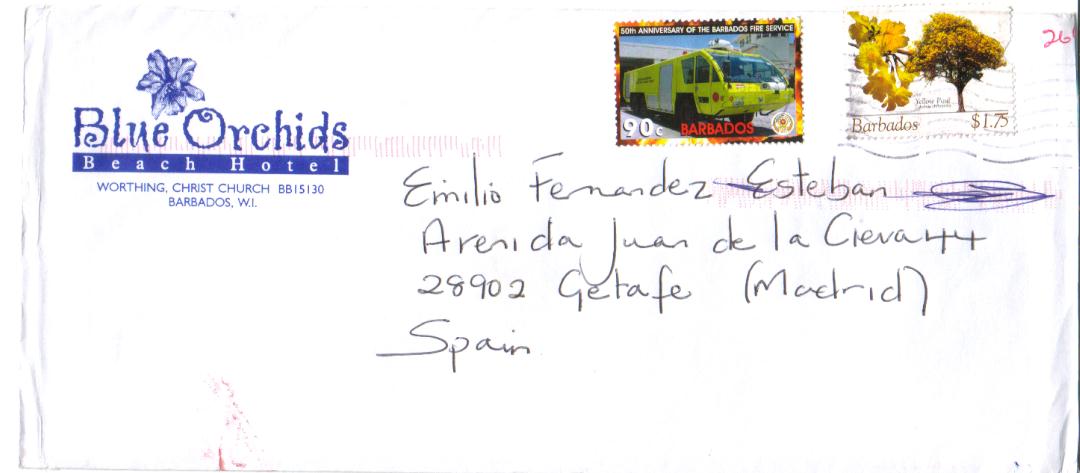 Blue Orchids
Beach Hotel
WORTHING, CHRIST CHURCH BB15130
BARBADOS, W.I.
50th ANNIVERSARY OF THE BARBADOS FIRE SERVICE
90c BARBADOS
Yellow Poui
Barbados $1.75
Emilio Fernandez Esteban
Avenida Juan de la Cieva 44
28902 Getafe (Madrid)
Spain